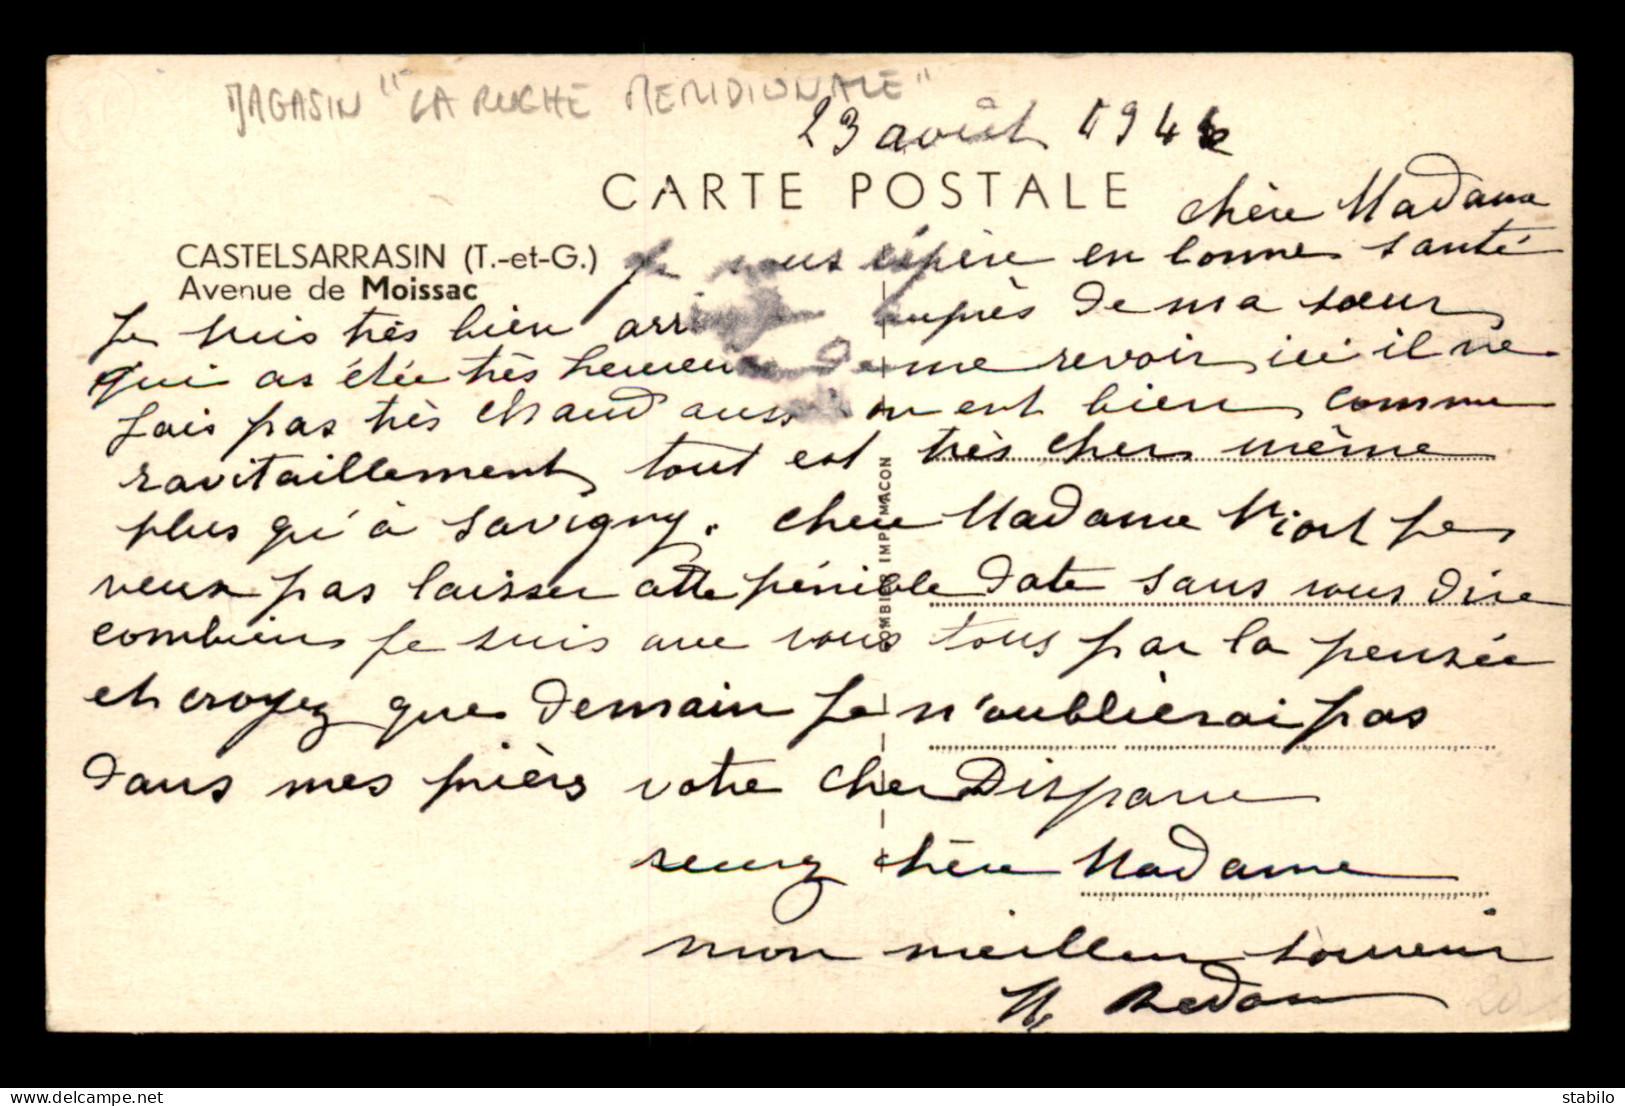 MAGASIN "LA RUCHE MERIDIONALE"
23 août 194
CARTE POSTALE
chère Madame
CASTELSARRASIN (T.-et-G.)
Avenue de Moissac
Je vous espère en bonne santé
Je suis très bien auprès de ma sœur
qui as étée très heureuse de me revoir ici il ne
fais pas très chaud aussi on est bien comme
ravitaillement tout est très cher même
plus qu'à Savigny. chère Madame Niort je
veux pas laisser cette pénible date sans vous dire
combien je suis avec vous tous par la pensée
et croyez que demain je n'oublierai pas
dans mes prièrs votre cher Disparu
recevez chère Madame
mon meilleur souvenir
Redon
COMBIER IMP. MACON
20
stabilo